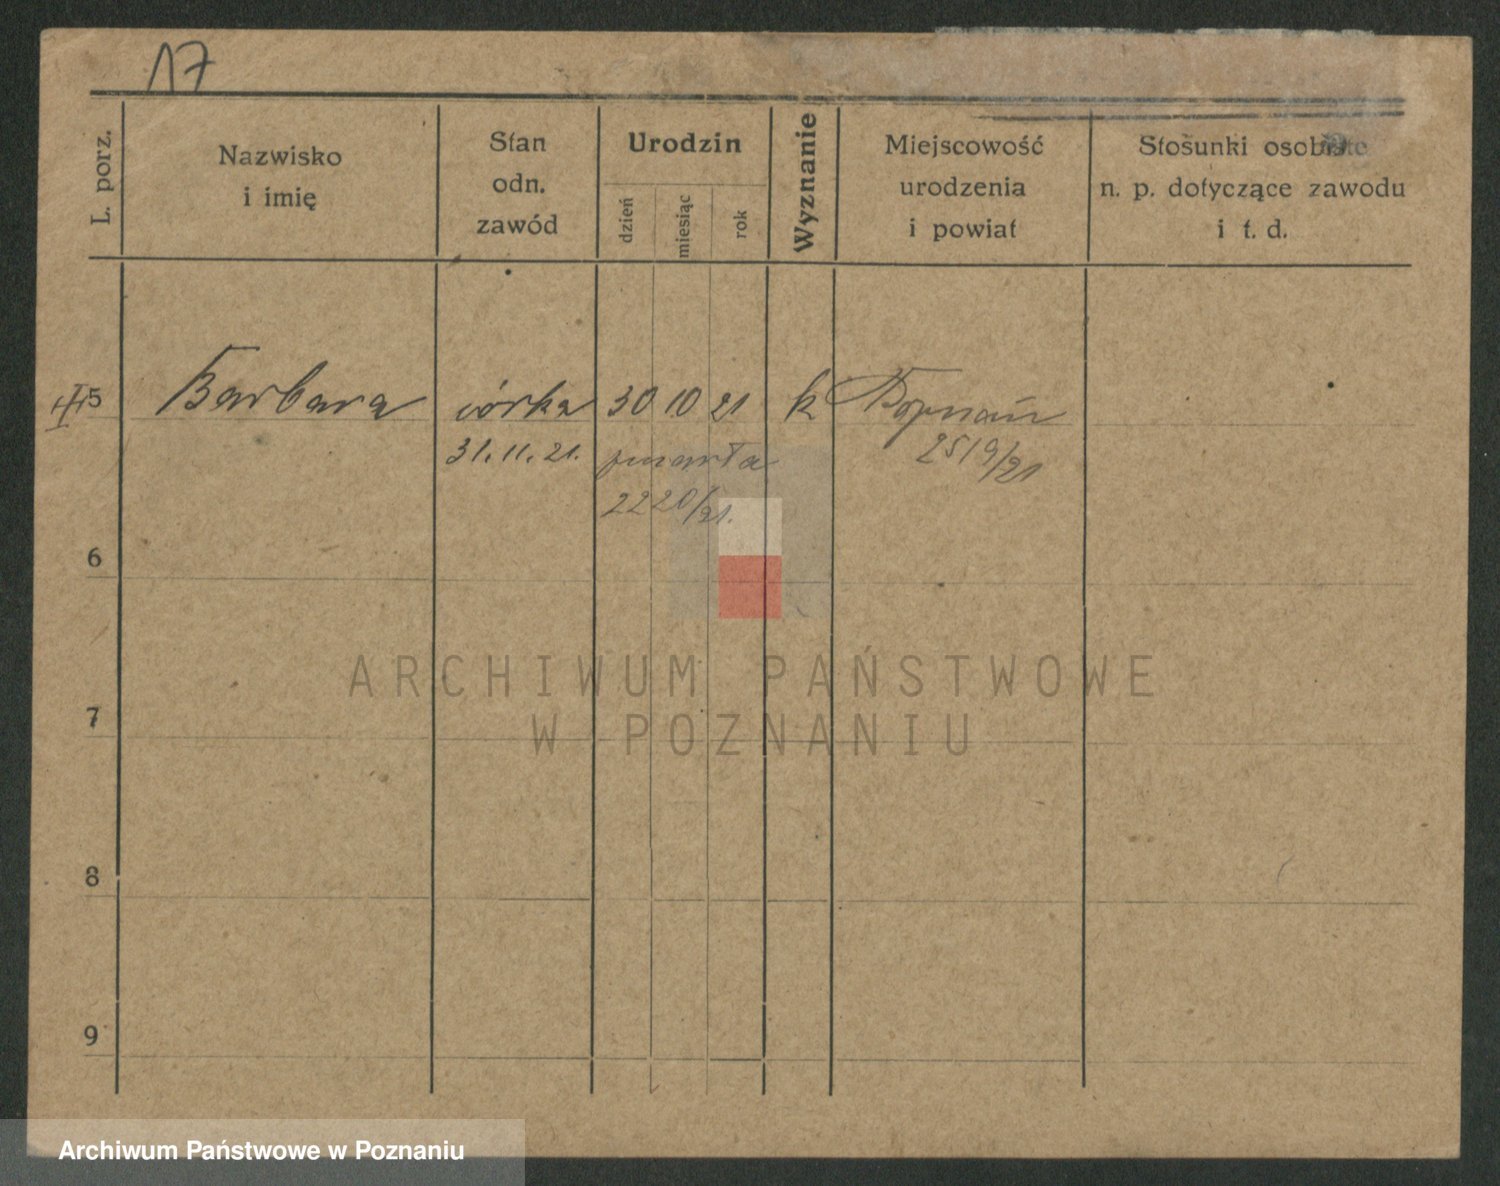 17
L. porz.
Nazwisko
i imię
Stan
odn.
zawód
Urodzin
dzień
miesiąc
rok
Wyznanie
Miejscowość
urodzenia
i powiat
Stosunki osobiste
n. p. dotyczące zawodu
i t. d.
5 Barbara córka 30 10 21 k Poznań
31.11.21. zmarła 2519/21
2220/21.
6
ARCHIWUM PAŃSTWOWE
7
W POZNANIU
8
9
Archiwum Państwowe w Poznaniu